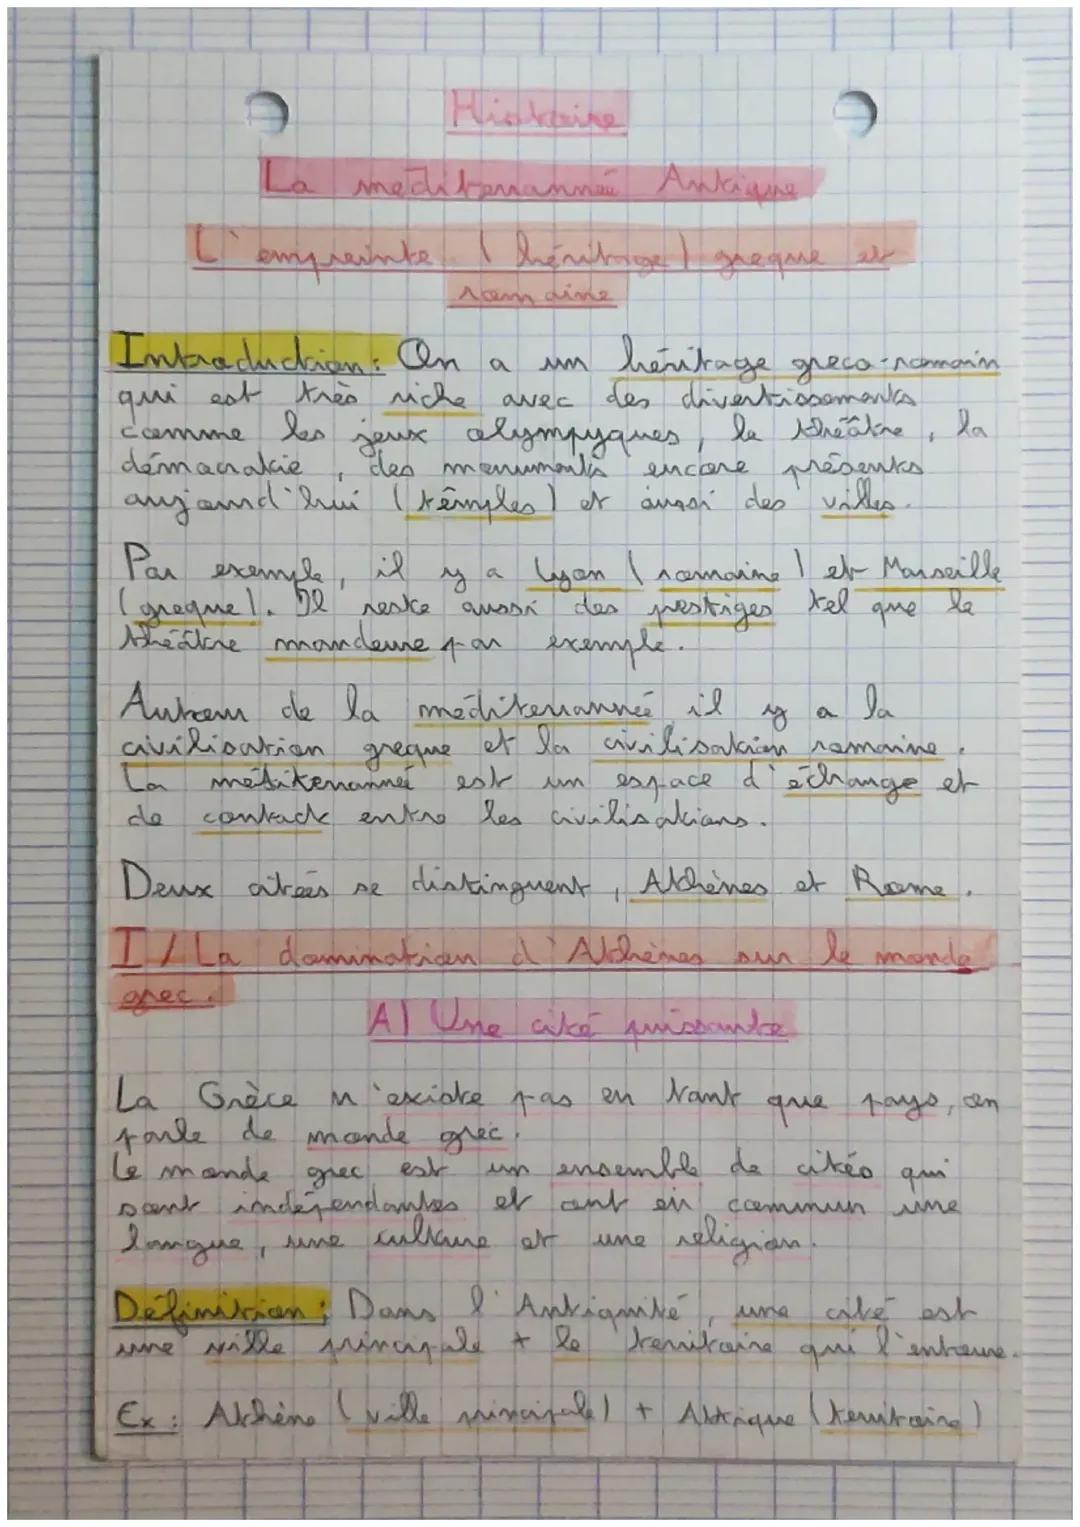 Histoire
La méditerrannée Antique
L'empreinte (héritage) greque et
romaine
Introduction: On a un héritage greco-romain
qui est très riche avec des divertissements
comme les jeux olympyques, le théâtre, la
démocratie, des monuments encore présents
aujourd'hui (têmples) et aussi des villes.
Par exemple, il y a Lyon (romaine) et Marseille
(greque). Il reste aussi des prestiges tel que le
théâtre mondeure par exemple.
Autour de la méditerrannée il y a la
civilisation greque et la civilisation romaine.
La méditerrannée est un espace d'échange et
de contact entre les civilisations.
Deux citées se distinguent, Athènes et Rome.
I/La domination d'Athènes sur le monde
grec.
A) Une cité puissante
La Grèce n'existe pas en tant que pays, on
parle de monde grec.
Le monde grec est un ensemble de cités qui
sont indépendantes et ont en commun une
langue, une culture et une religion.
Définition: Dans l'Antiquité, une cité est
une ville principale + le territoire qui l'entoure.
Ex: Athène (ville principale) + Attique (territoire)